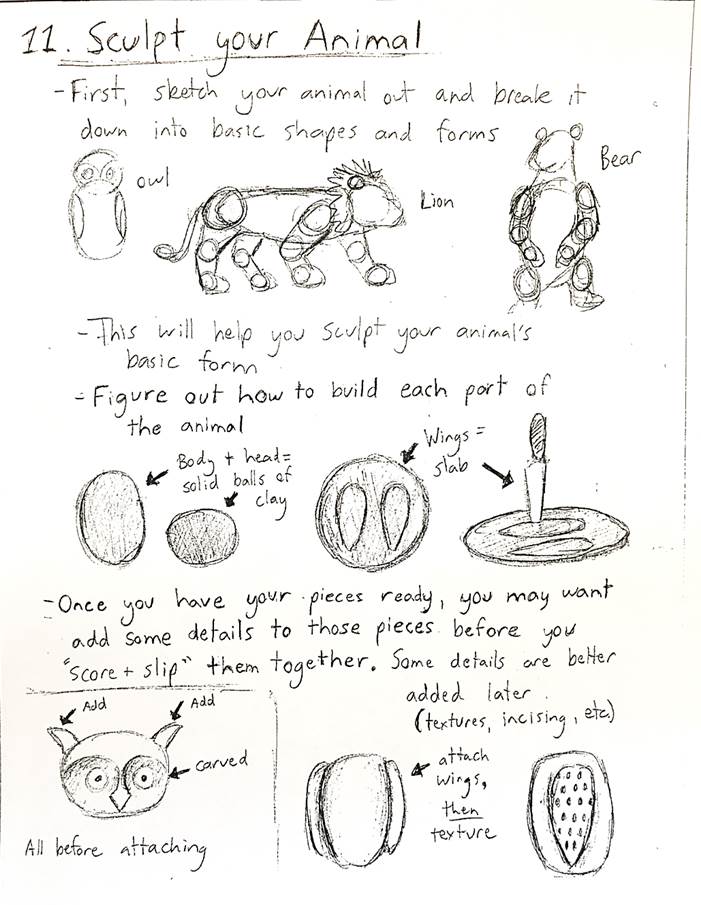 11. Sculpt your Animal
- First, sketch your animal out and break it
down into basic shapes and forms
owl
Lion
Bear
- This will help you sculpt your animal's
basic form
- Figure out how to build each part of
the animal
Body + head =
solid balls of
clay
Wings =
slab
- Once you have your pieces ready, you may want
add some details to those pieces before you
"score + slip" them together. Some details are better
added later.
(textures, incising, etc.)
Add
Add
carved
All before attaching
attach
wings,
then
texture